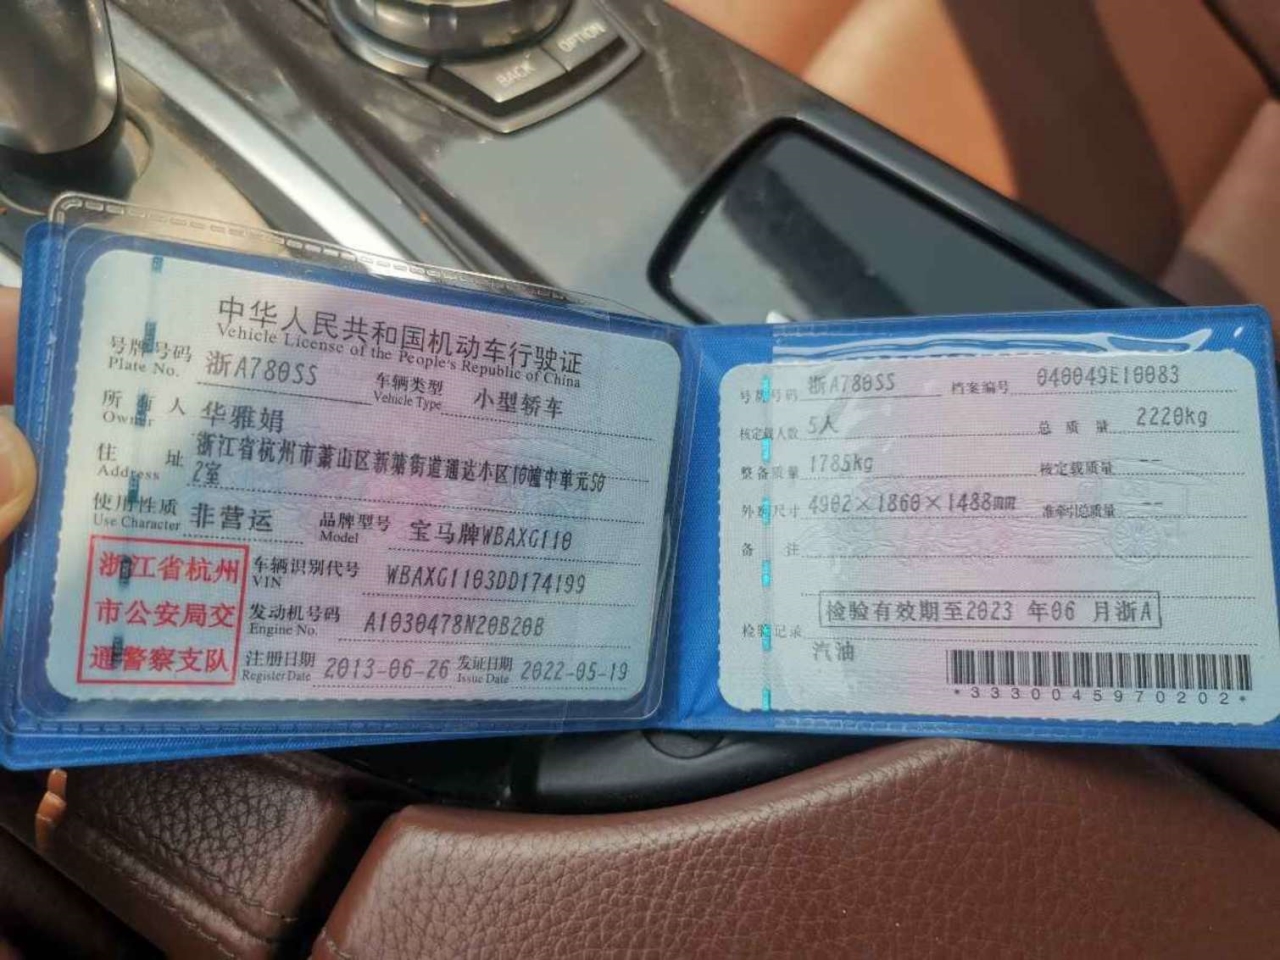 BACK
OPTION
中华人民共和国机动车行驶证
Vehicle License of the People's Republic of China
号牌号码 浙A780SS 车辆类型 小型轿车
Plate No. Vehicle Type
所有人 华雅娟
Owner
住址 浙江省杭州市萧山区新塘街道通达小区10幢中单元50
Address 2室
使用性质 非营运 品牌型号 宝马牌WBAXG110
Use Character Model
浙江省杭州
市公安局交
通警察支队
车辆识别代号 WBAXG1103DD174199
VIN
发动机号码 A1030478N20B20B
Engine No.
注册日期 2013-06-26 发证日期 2022-05-19
Register Date Issue Date
号牌号码 浙A780SS 档案编号 040049E10083
核定载人数 5人 总质量 2220kg
整备质量 1785kg 核定载质量 --
外廓尺寸 4902×1860×1488mm 准牵引总质量 --
备注
检验有效期至2023 年06 月浙A
检验记录
汽油
*3330045970202*